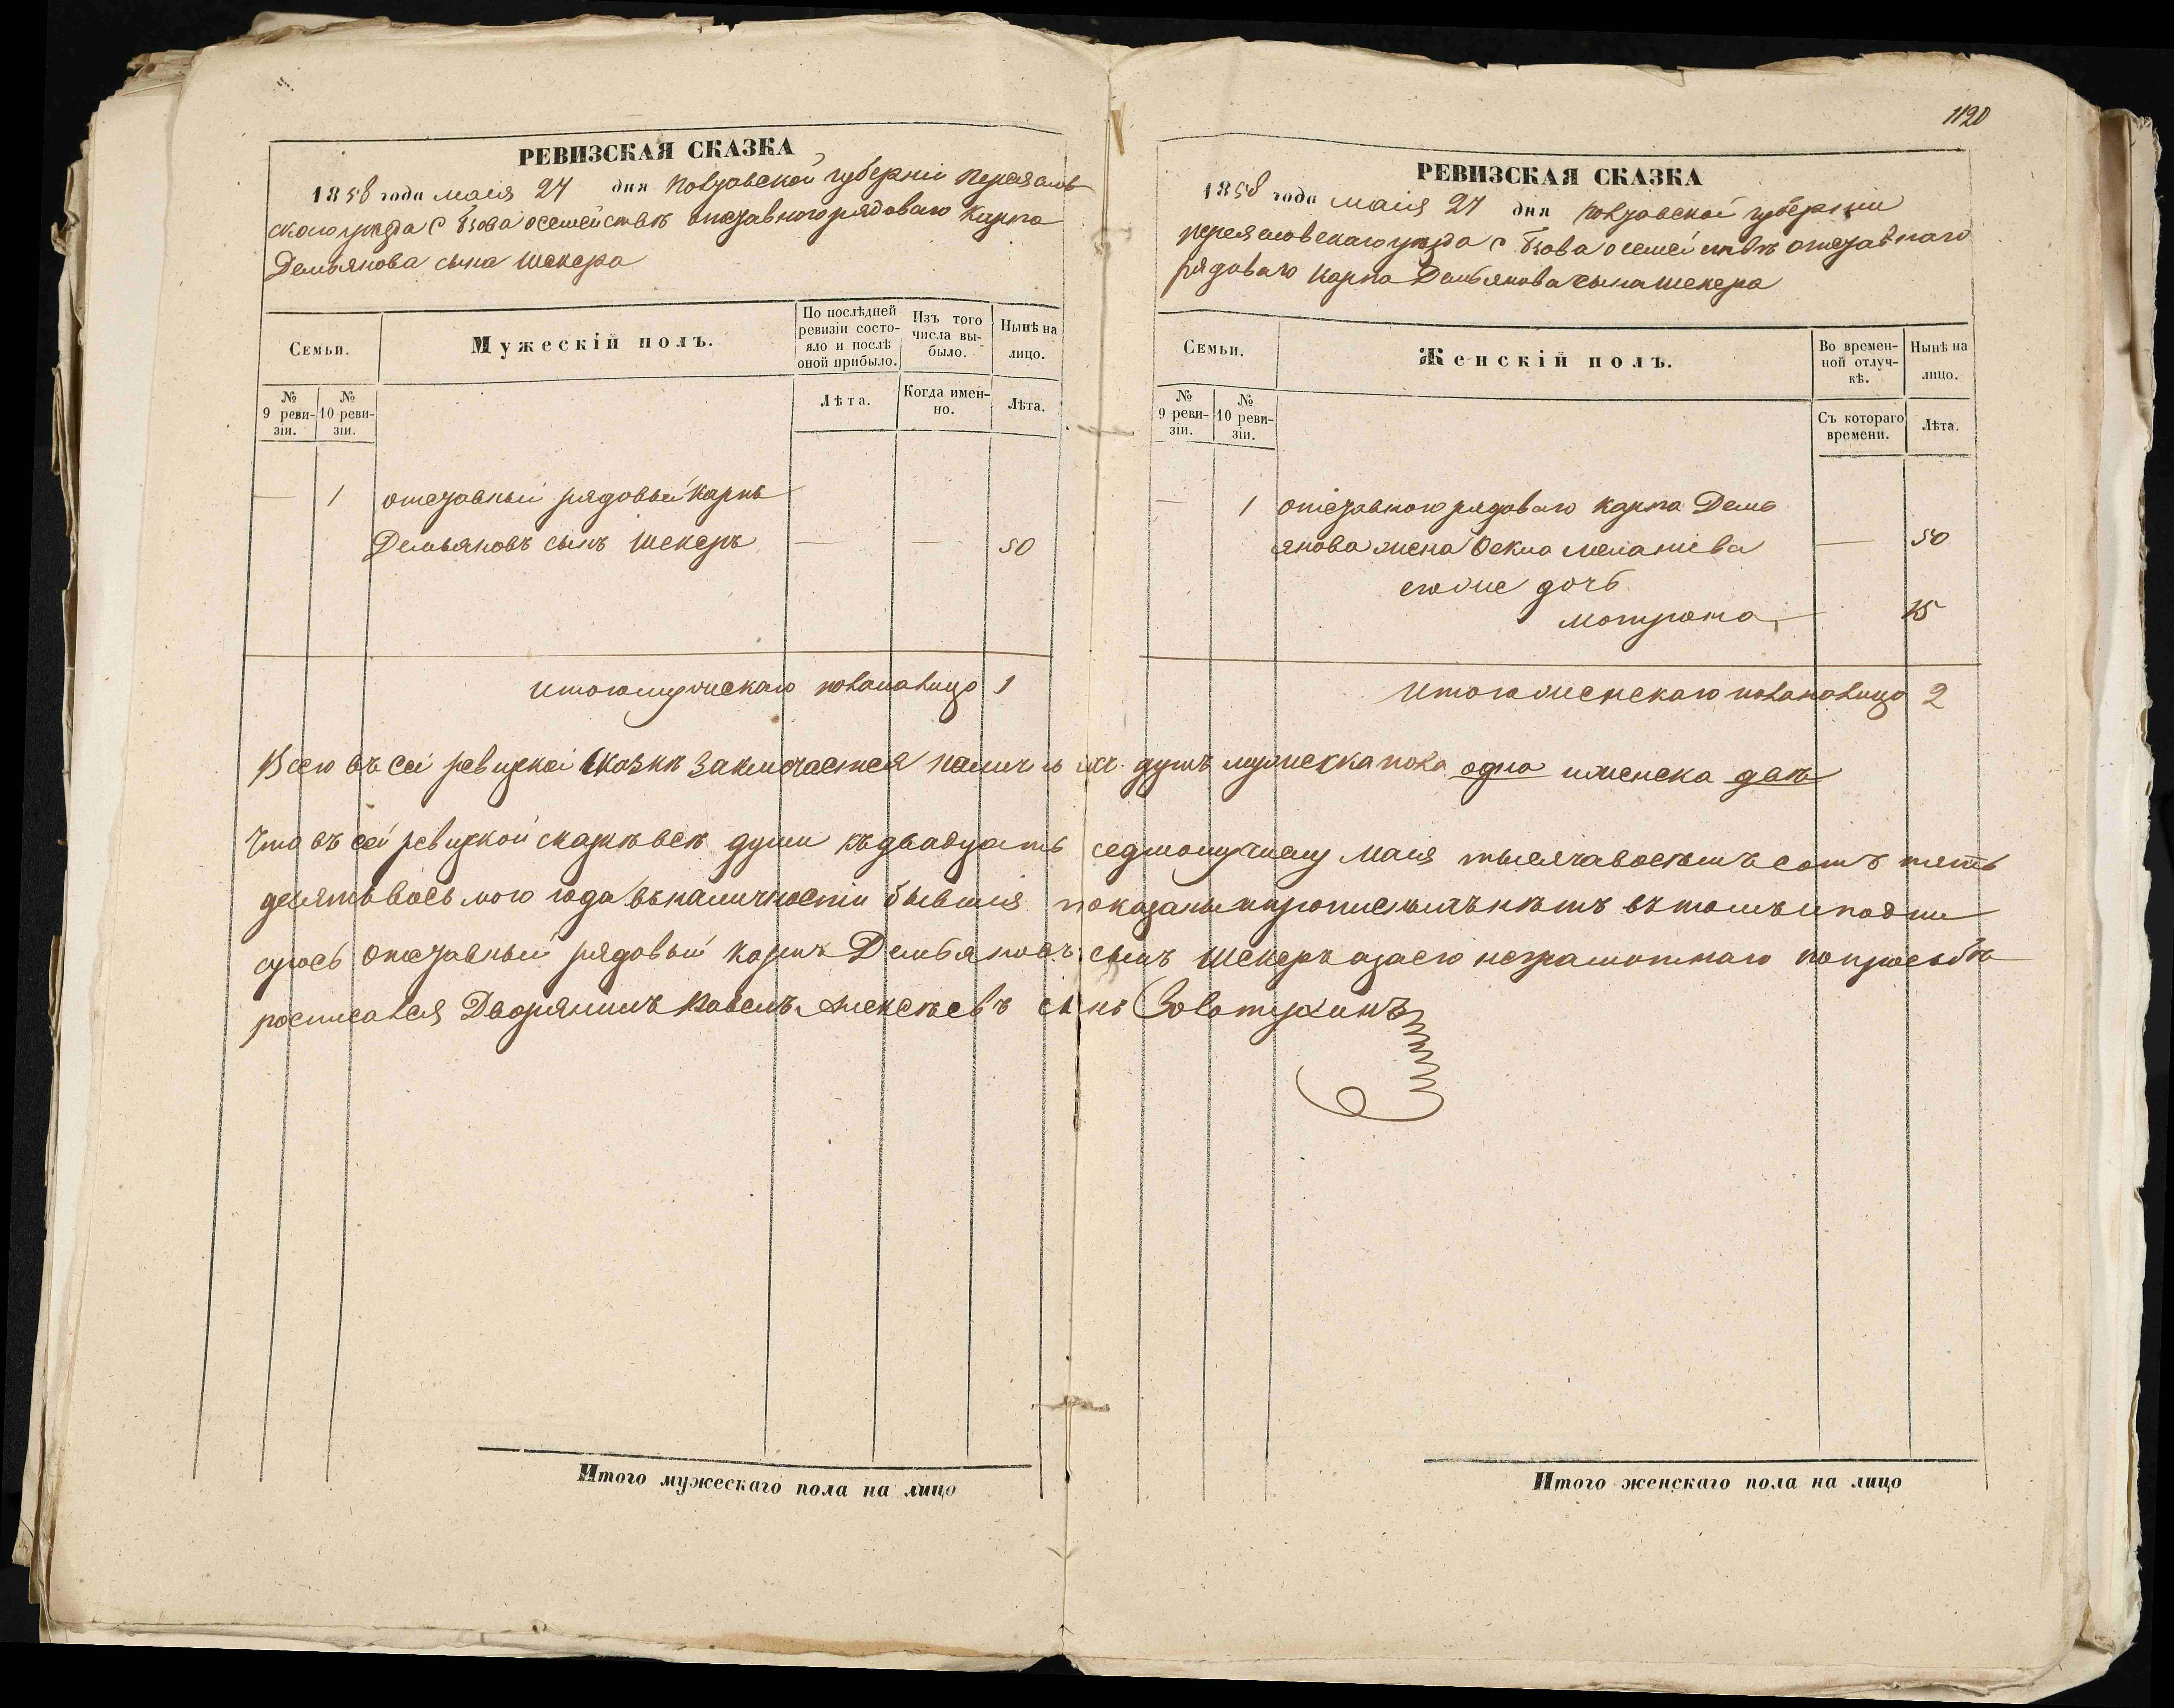 РЕВИЗСКАЯ СКАЗКА
1858 года маія 27 дня Полтавской губерніи Переяслов
скаго уезда с Бзова осемействѣ отставного рядоваго Карпа
Демьянова сына Шекера
Семьи.
Мужескій полъ.
По послѣдней ревизіи состо-
яло и послѣ оной прибыло.
Изъ того числа вы-
было.
Нынѣ на лицо.
№ 9 реви-
зіи.
№ 10 реви-
зіи.
Лѣта.
Когда имен-
но.
Лѣта.
— 1 отставный рядовый Карпъ
Демьяновъ сынъ Шекеръ — — 50
Итого мужескаго пола налицо 1
1120
РЕВИЗСКАЯ СКАЗКА
1858 года маія 27 дня Полтавской губерніи
Переясловскаго уезда с Бзова осемействѣ отставнаго
рядоваго Карпа Демьянова сына Шекера
Семьи.
Женскій полъ.
Во времен-
ной отлуч-
кѣ.
Нынѣ на лицо.
№ 9 реви-
зіи.
№ 10 реви-
зіи.
Съ котораго времени.
Лѣта.
— 1 отставного рядоваго Карпа Демь
янова жена Фекла — 50
дочь
Мотрона — 15
Итого женскаго пола налицо 2
Всего въ сей ревизкой сказкѣ заключается душъ мужеска пола одна и женска двѣ
Что въ сей ревизкой сказкѣ всѣ души къ двадцать седмому числу Маія тысяча восемъ сотъ пять
десять восьмого года въ наличности бывшія показаны и прописныхъ нѣтъ въ томъ и подпи
суюсь отставный рядовый Карпъ Демьяновъ сынъ Шекеръ а за его неграмотнаго по просьбѣ
росписался Дворянинъ Павелъ Алексѣевъ сынъ Золотухинъ
Итого мужескаго пола на лицо
Итого женскаго пола на лицо